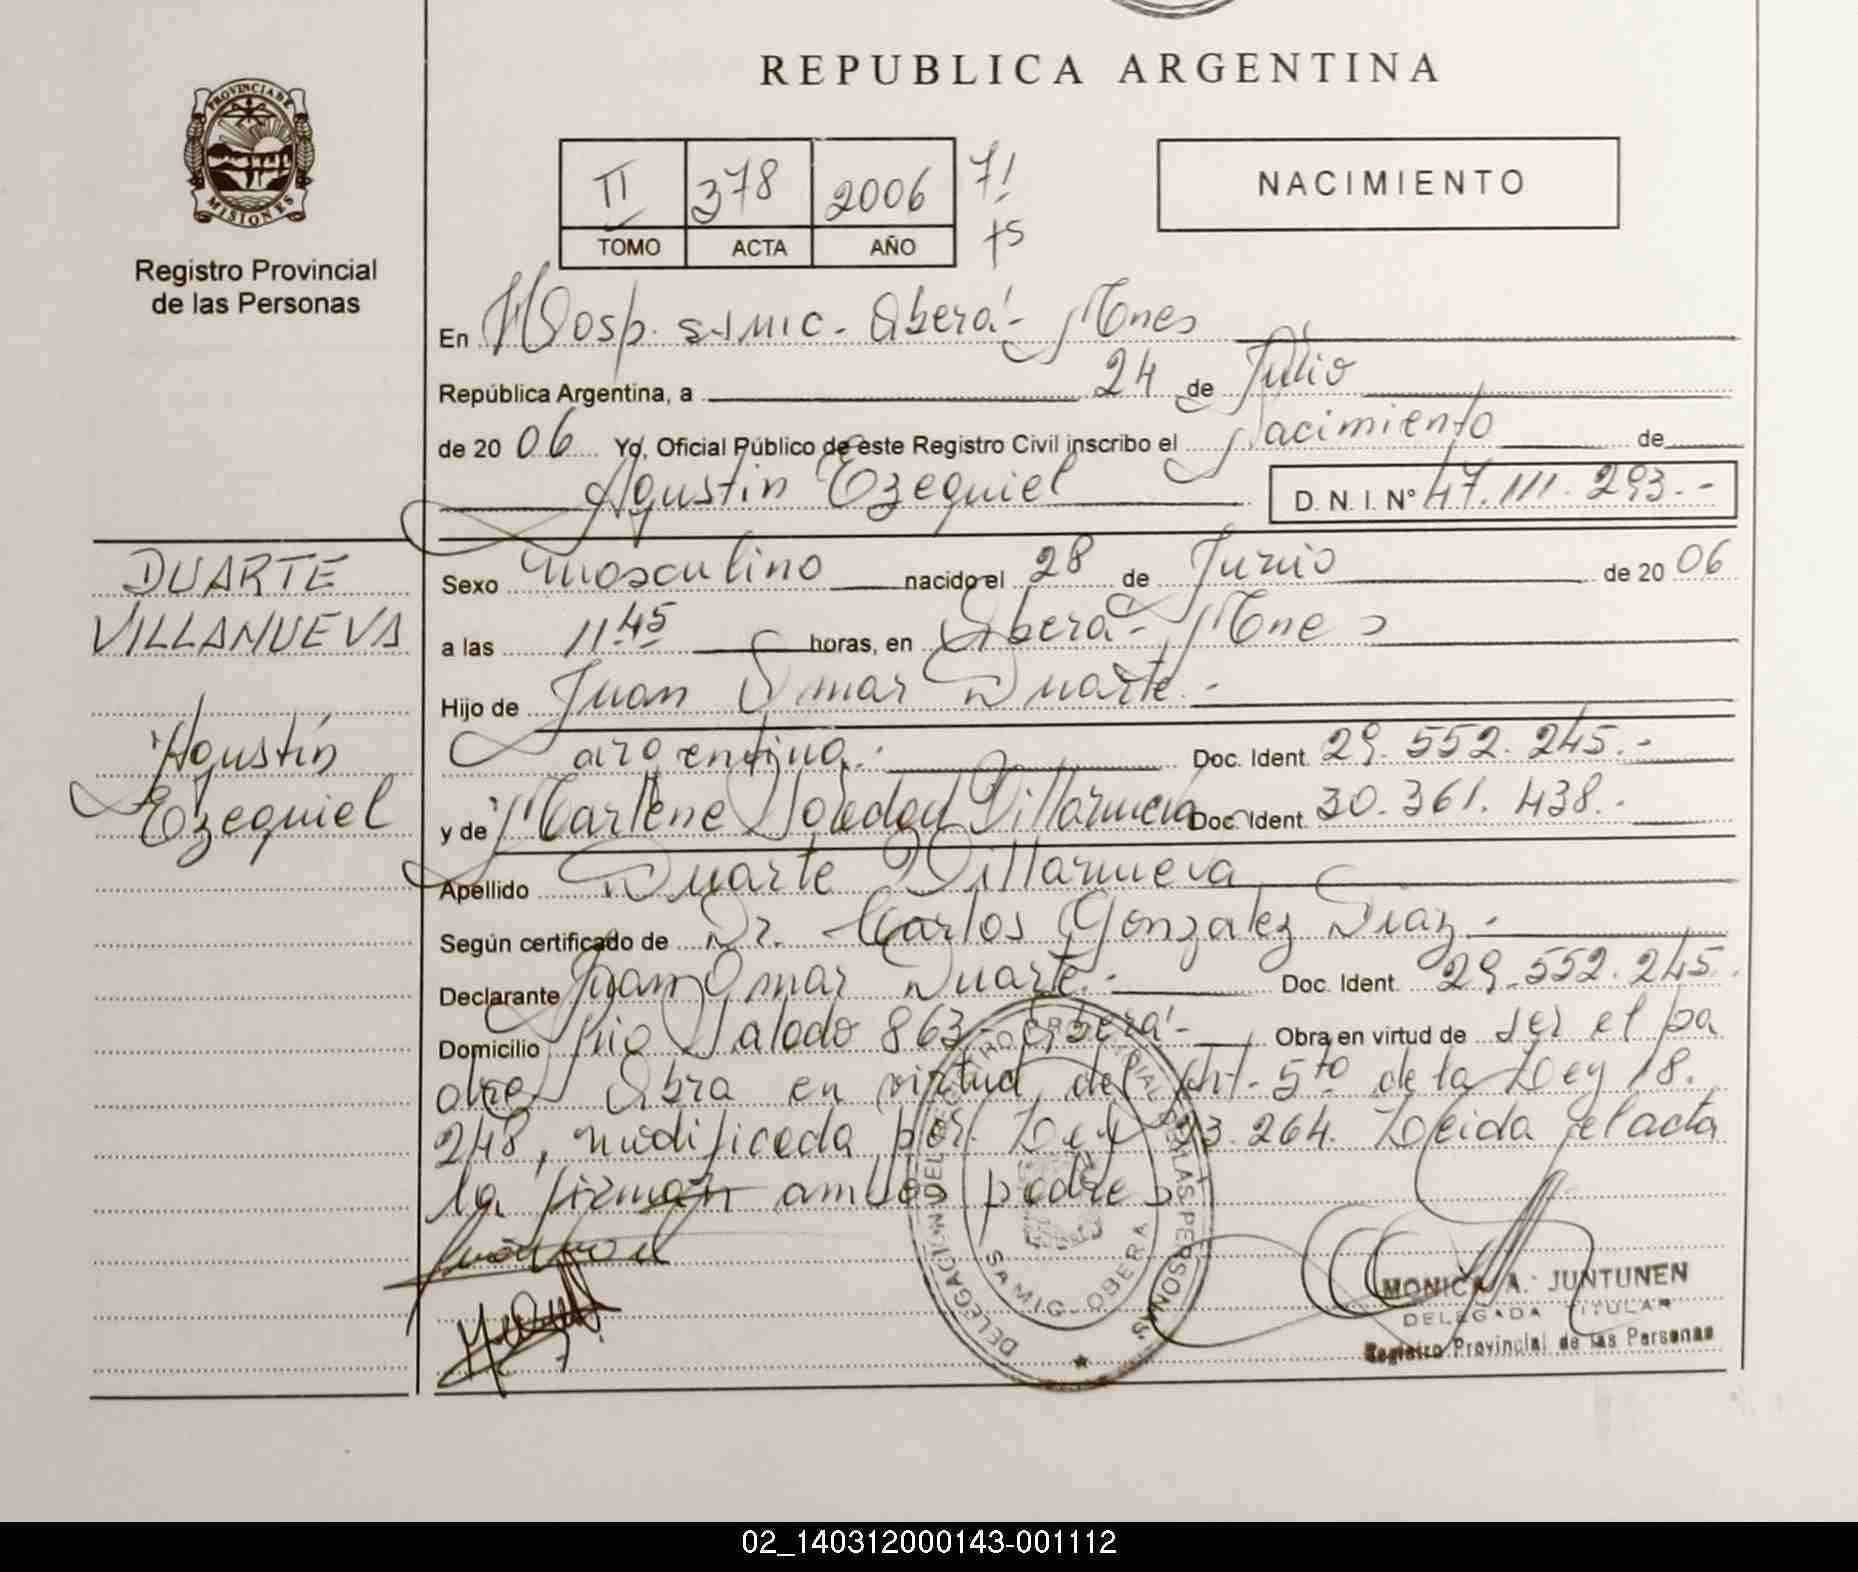 REPUBLICA ARGENTINA
PROVINCIA DE
MISIONES
Registro Provincial
de las Personas
II 378 2006 7!
TOMO ACTA AÑO ts
NACIMIENTO
En Hosp. SAMIC. Oberá - Mnes
República Argentina, a 24 de Julio
de 20 06 Yo, Oficial Público de este Registro Civil inscribo el Nacimiento de
Agustín Ezequiel D. N. I. N° 47.111.293.-
DUARTE
VILLANUEVA
Agustín
Ezequiel
Sexo Masculino nacido el 28 de Junio de 20 06
a las 11 45 horas, en Oberá - Mnes
Hijo de Juan Omar Duarte.-
argentino.- Doc. Ident. 29.552.245.-
y de Marlene Soledad Villanueva Doc. Ident. 30.361.438.-
Apellido Duarte Villanueva
Según certificado de Dr. Carlos Gonzalez Diaz.-
Declarante Juan Omar Duarte.- Doc. Ident. 29.552.245.
Domicilio Salado 863 - Oberá - Obra en virtud de ser el pa
dre Obra en virtud del Art. 5to de la Ley 18.
248, modificada por Ley 23.264. Leida el acta
la firman ambos padres
DELEGACION DEL REGISTRO PROVINCIAL DE LAS PERSONAS
SAMIC - OBERA
MONICA A. JUNTUNEN
DELEGADA TITULAR
Registro Provincial de las Personas
02_140312000143-001112